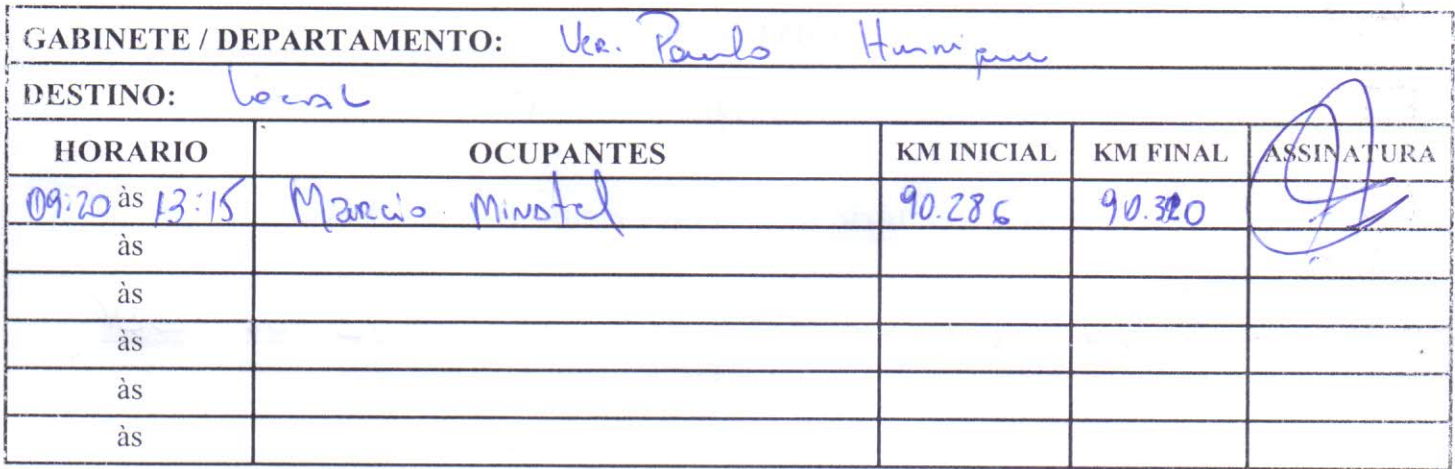 GABINETE / DEPARTAMENTO: Ver. Paulo Henrique
DESTINO: Local
HORARIO OCUPANTES KM INICIAL KM FINAL ASSINATURA
09:20 às 13:15 Marcio Minatel 90.286 90.320
às
às
às
às
às